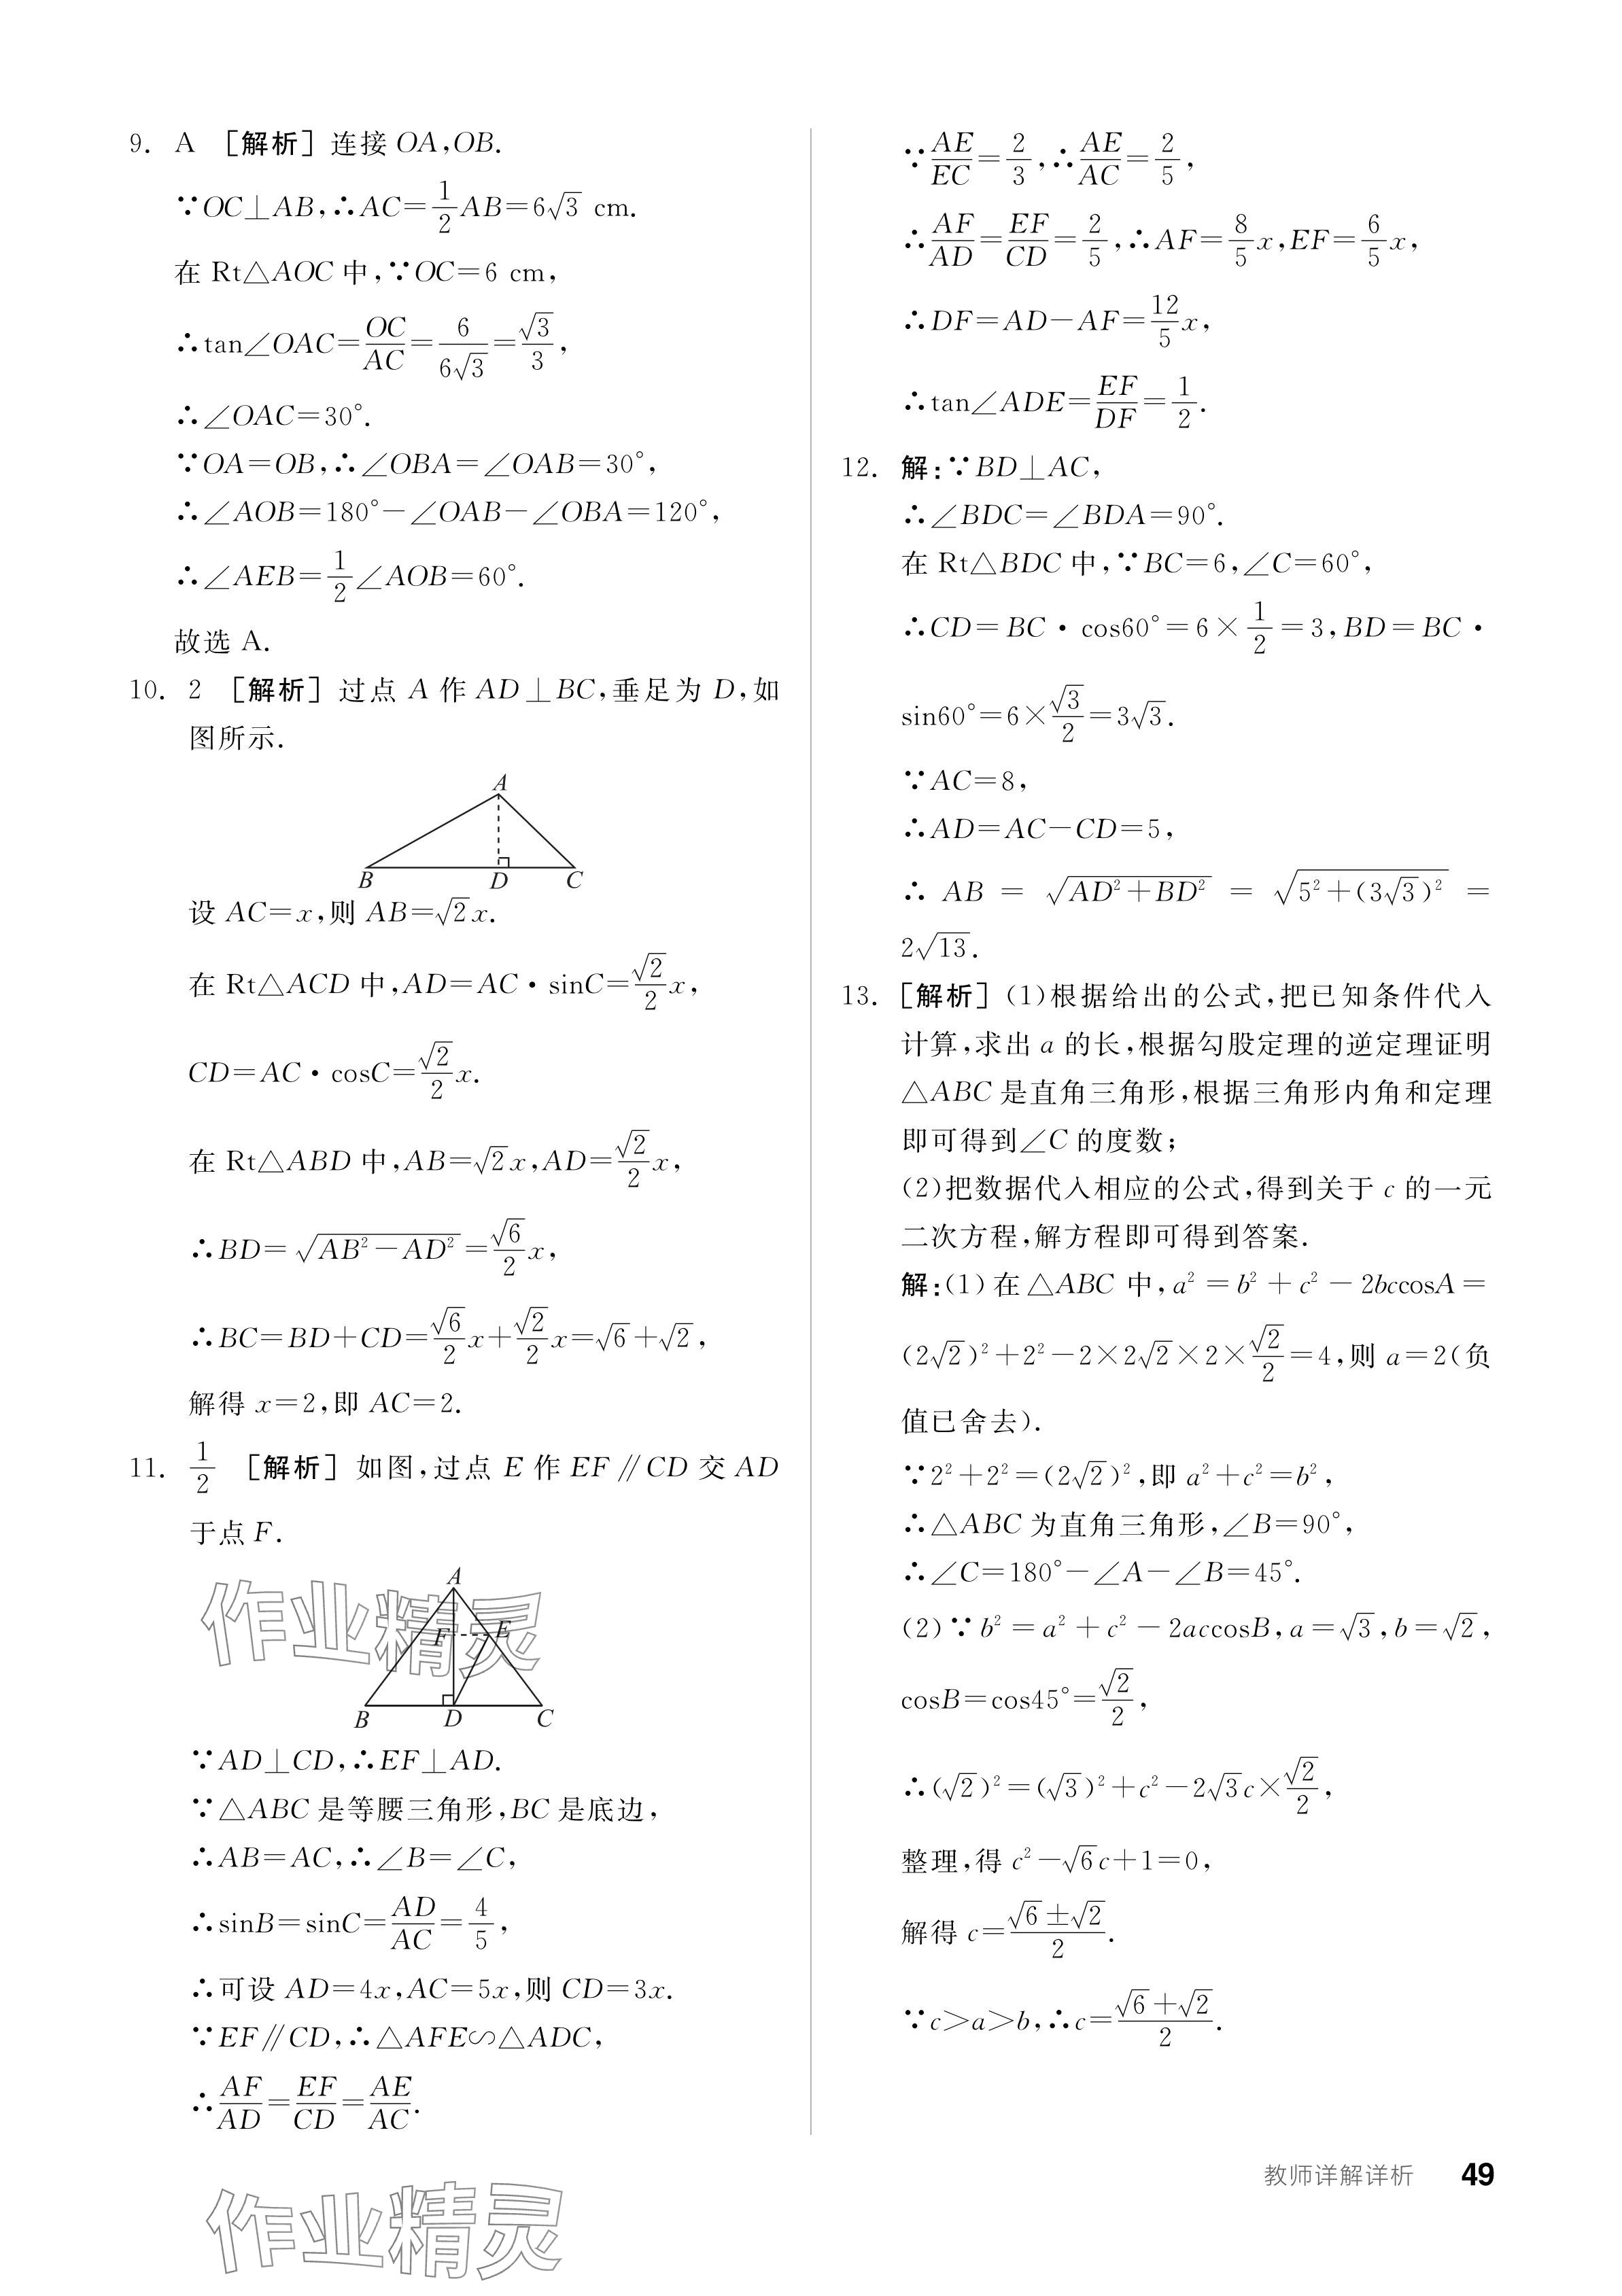 9. A [解析] 连接 OA,OB.
∵OC⊥AB,∴AC=\frac{1}{2}AB=6√3 cm.
在 Rt△AOC 中,∵OC=6 cm,
∴tan∠OAC=\frac{OC}{AC}=\frac{6}{6√3}=\frac{√3}{3},
∴∠OAC=30°.
∵OA=OB,∴∠OBA=∠OAB=30°,
∴∠AOB=180°-∠OAB-∠OBA=120°,
∴∠AEB=\frac{1}{2}∠AOB=60°.
故选 A.
10. 2 [解析] 过点 A 作 AD⊥BC,垂足为 D,如
图所示.
A
B D C
设 AC=x,则 AB=√2x.
在 Rt△ACD 中,AD=AC·sinC=\frac{√2}{2}x,
CD=AC·cosC=\frac{√2}{2}x.
在 Rt△ABD 中,AB=√2x,AD=\frac{√2}{2}x,
∴BD=√(AB²-AD²)=\frac{√6}{2}x,
∴BC=BD+CD=\frac{√6}{2}x+\frac{√2}{2}x=√6+√2,
解得 x=2,即 AC=2.
11. \frac{1}{2} [解析] 如图,过点 E 作 EF∥CD 交 AD
于点 F.
A
F E
B D C
作业精灵
∵AD⊥CD,∴EF⊥AD.
∵△ABC 是等腰三角形,BC 是底边,
∴AB=AC,∴∠B=∠C,
∴sinB=sinC=\frac{AD}{AC}=\frac{4}{5},
∴可设 AD=4x,AC=5x,则 CD=3x.
∵EF∥CD,∴△AFE∽△ADC,
∴\frac{AF}{AD}=\frac{EF}{CD}=\frac{AE}{AC}.
∵\frac{AE}{EC}=\frac{2}{3},∴\frac{AE}{AC}=\frac{2}{5},
∴\frac{AF}{AD}=\frac{EF}{CD}=\frac{2}{5},∴AF=\frac{8}{5}x,EF=\frac{6}{5}x,
∴DF=AD-AF=\frac{12}{5}x,
∴tan∠ADE=\frac{EF}{DF}=\frac{1}{2}.
12. 解:∵BD⊥AC,
∴∠BDC=∠BDA=90°.
在 Rt△BDC 中,∵BC=6,∠C=60°,
∴CD=BC·cos60°=6×\frac{1}{2}=3,BD=BC·
sin60°=6×\frac{√3}{2}=3√3.
∵AC=8,
∴AD=AC-CD=5,
∴AB=√(AD²+BD²)=√(5²+(3√3)²)=
2√13.
13. [解析] (1)根据给出的公式,把已知条件代入
计算,求出 a 的长,根据勾股定理的逆定理证明
△ABC 是直角三角形,根据三角形内角和定理
即可得到∠C 的度数;
(2)把数据代入相应的公式,得到关于 c 的一元
二次方程,解方程即可得到答案.
解:(1)在△ABC 中,a²=b²+c²-2bccosA=
(2√2)²+2²-2×2√2×2×\frac{√2}{2}=4,则 a=2(负
值已舍去).
∵2²+2²=(2√2)²,即 a²+c²=b²,
∴△ABC 为直角三角形,∠B=90°,
∴∠C=180°-∠A-∠B=45°.
(2)∵b²=a²+c²-2accosB,a=√3,b=√2,
cosB=cos45°=\frac{√2}{2},
∴(√2)²=(√3)²+c²-2√3c×\frac{√2}{2},
整理,得 c²-√6c+1=0,
解得 c=\frac{√6±√2}{2}.
∵c>a>b,∴c=\frac{√6+√2}{2}.
教师详解详析 49
作业精灵